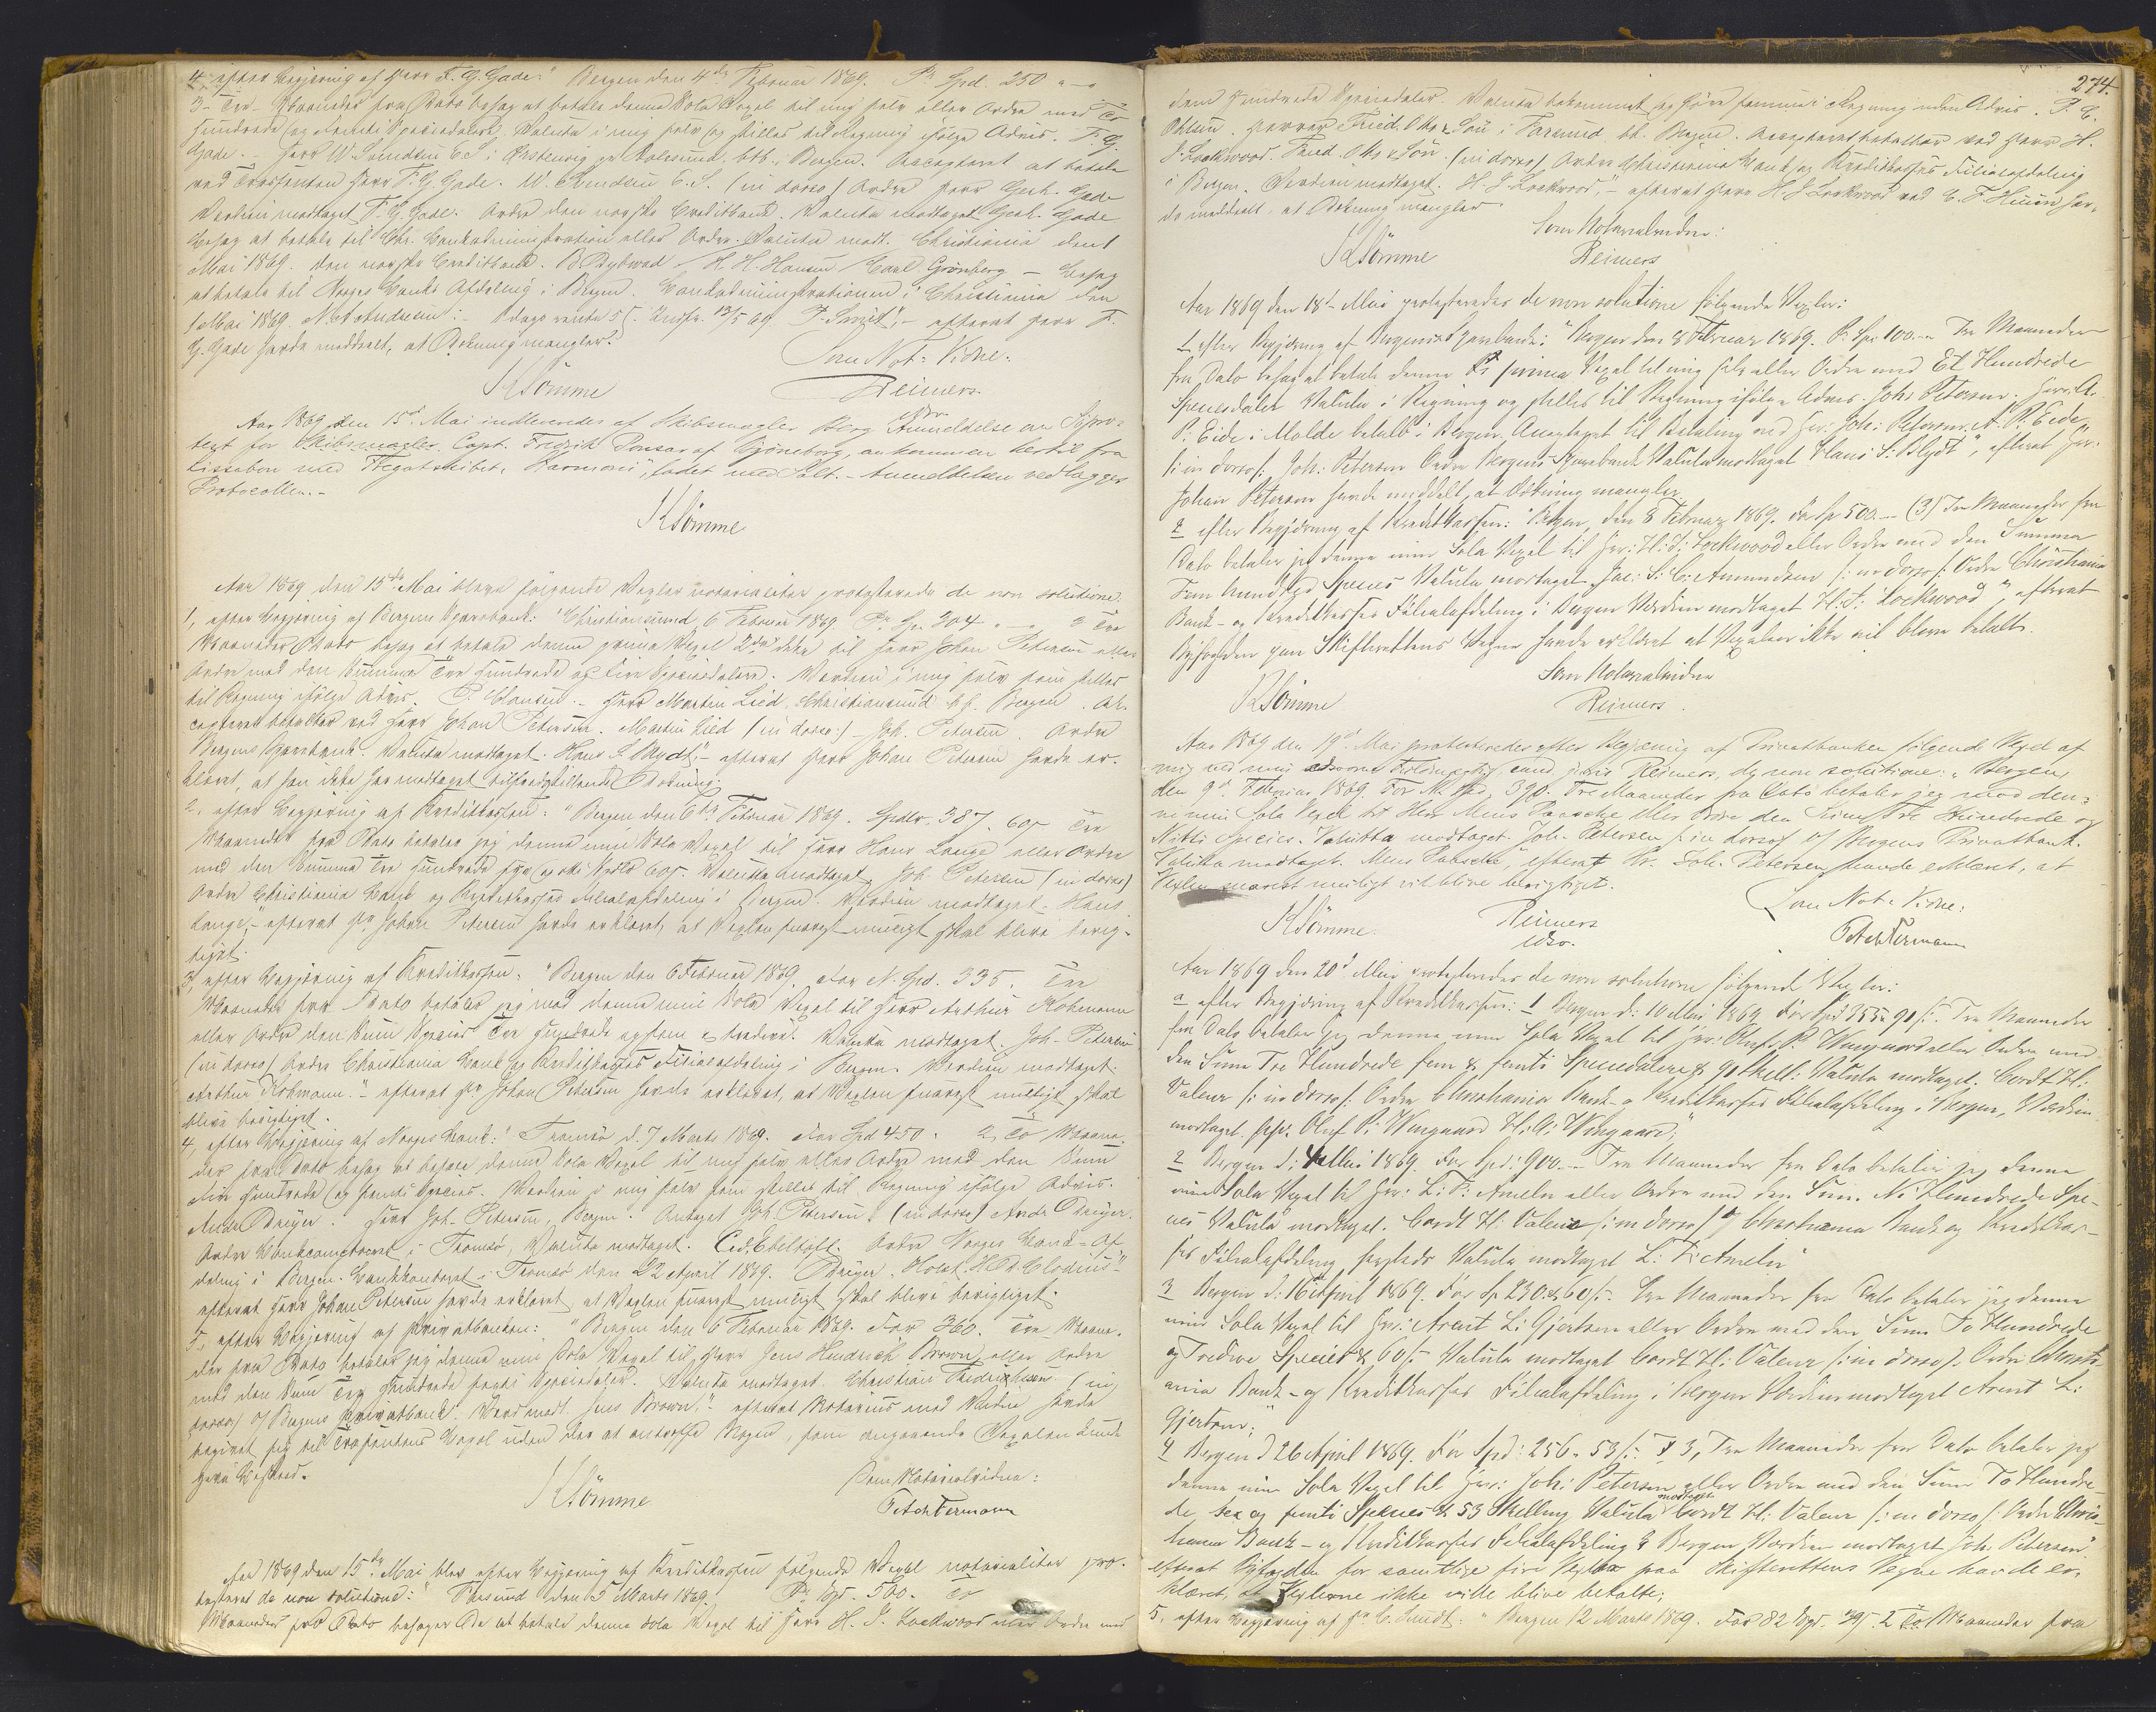 4 efter Begjæring af Herr F. G. Gade: "Bergen den 4de Februar 1869. Pr Spd. 250 „-„
3- Tre- Maaneder fra Dato behag at betale denne Sola Vexel til mig selv eller Ordre med To
Hundrede og Femti Speciedaler, Valuta i mig selv og stilles til Regning ifølge Advis. F. G.
Gade. - Herr W. Svendsen E. S. i Ørstenvig pr Aalesund. betb. i Bergen. Accepteret at betale
ved Trassenten Herr F. G. Gade. W. Svendsen E. S. (in dorso) Ordre Herr Gerh. Gade
Værdien modtaget F. G. Gade. Ordre den norske Creditbank. Valuta modtaget Gerh. Gade
Behag at betale til Chr. Bankadministration eller Ordre. Valuta modt. Christiania den 1
Mai 1869. den norske Creditbank. B Rybwad H. H. Hansen / Carl Grönberg - Behag
at betale til Norges Banks Afdeling i Bergen. Bankadministrationen i Christiania den
1 Mai 1869. N. Andresen: - 12/5 69 P. Smit", - efterat Herr F.
G. Gade havde meddeelt, at Dækning mangler.
Som Not: Vidne.
KSömme Reimers.
Aar 1869 den 15d Mai indleveredes af Skibsmægler Berg Anmeldelse om Söpro-
test for Skibsmægler Capt. Fredrik Ponsar af Björneborg, ankommen hertil fra
Lissabon med Fregatskibet „Harmoni", ladet med Salt. - Anmeldelsen vedlægges
Protocollen. -
KSömme
Aar 1869 den 15de Mai bleve følgende Vexler notarialiter protesterede de non solutione
1, efter Begjæring af Bergens Sparebank: "Christiansund 6 Februar 1869. Pr Sp. 204 „-„ 3 Tre
Maaneder Dato behag at betale denne prima Vexel 2da dito til Herr Johan Petersen eller
Ordre med den Summa To Hundrede og Fire Speciedaler. Værdien i mig selv som stilles
til Regning ifølge Advis. P. Clausen. - Herr Martin Lied, Christiansund bb. Bergen. Ac-
cepteret betalbar ved Herr Johan Petersen. Martin Lied (in dorso:) - Joh. Petersen. Ordre
Bergens Sparebank. Valuta modtaget. Hans S. Blydt", - efterat Herr Johan Petersen havde er-
klæret, at han ikke har modtaget tilfredsstillende Dækning.
2, efter Begjæring af Kreditkassen: "Bergen den 6te Februar 1869. Spdlr. 387. 60ß Tre
Maaneder fra Dato betaler jeg denne min Sola Vexel til Herr Hans Lange eller Ordre
med den Summa Tre Hundrede syv og otti Spdlr 60ß. Valuta modtaget. Joh. Petersen (in dorso)
Ordre Christiania Bank og Kreditkasses Filialafdeling i Bergen. Værdien modtaget. Hans
Lange", - efterat Hr Johan Petersen havde erklæret, at Vexlen snarest muligt skal blive berig-
tiget.
3, efter Begjæring af Kreditkassen: "Bergen den 6 Februar 1869. For N. Spd. 335. Tre
Maaneder fra Dato betaler jeg mod denne min Sola Vexel til Herr Arthur Kohmann
eller Ordre den Sum Species Tre Hundrede og fem & tredive. Valuta modtaget. Joh. Petersen
(in dorso) Ordre Christiania Bank og Kreditkasses Filialafdeling i Bergen. Værdien modtaget.
Arthur Kohmann." - efterat Hr Johan Petersen havde erklæret, at Vexlen snarest muligt skal
blive berigtiget.
4, efter Begjæring af Norges Bank: "Tromsø d. 7 Marts 1869. For Spd 450. 2, To Maane-
der fra Dato behag at betale denne Sola Vexel til mig selv eller Ordre med den Sum
Fire Hundrede og Femti Species. Værdien i mig selv som stilles til Regning ifølge Advis.
Andr. Dreyer. Herr Joh. Petersen, Bergen. Antaget Joh. Petersen (in dorso) Andr Dreyer.
Ordre Bankcomptoiret i Tromsø, Valuta modtaget. C. d. Ebeltoft. Ordre Norges Bank-Af-
deling i Bergen. Bankkontoret i Tromsø den 22 April 1869. Dreyer. Holck. H. Clodius" -
efterat Herr Johan Petersen havde erklæret at Vexlen snarest muligt skal blive berigtiget.
5, efter Begjæring af Privatbanken: "Bergen den 6 Februar 1869. For 360. Tre Maane-
der fra Dato betaler jeg denne min Sola Vexel til Herr Jens Hindrich Brown eller Ordre
med den Sum Tre Hundrede sexti Speciedaler. Valuta modtaget. Christian Fredrichsen. (in
dorso) O/ Bergens Privatbank. Værd modt. Jens Brown", - efterat Notarius med Vidne havde
begivet sig til Trassentens Bopæl uden der at antræffe Nogen, som angaaende Vexelen kunde
give Besked.
KSömme Som Notarialvidne:
Fetch Vermann
Aar 1869 den 15de Mai blev efter Begjæring af Kreditkassen følgende Vexel notarialiter pro-
testeret de non solutione: "Farsund den 5 Marts 1869. Pr Spd. 500. To
Maaneder fra Dato behager De at betale denne Sola Vexel til Herr H. J. Lockwood eller Ordre med
274.
Fem Hundrede Speciedaler. Valuta bekommet og føres samme i Regning uden Advis. P. C.
Ottesen. Herrer Fried. Otto & Sön i Farsund bt. Bergen. Accepteret betalbar ved Herr H.
J. Lockwood. Fried. Otto & Sön. (in dorso) Ordre Christiania Bank og Kreditkasses Filialafdeling
i Bergen. Værdien modtaget. H. J. Lockwood", - efterat Herr H. J. Lockwood ved C. F. Huun hav-
de meddeelt, at Dækning mangler.
Som Notarialvidne:
KSömme Reimers
Aar 1869 den 18d Mai protesteredes de non solutione følgende Vexler:
1 efter Begjæring af Bergens Sparebank: "Bergen den 8 Februar 1869. Pr Spd 100 -„ Tre Maaneder
fra Dato behag at betale denne Pr prima Vexel til mig selv eller Ordre med Et Hundrede
Speciesdaler Valuta i Regning og stilles til Regning ifølge Advis. Joh: Petersen. Herr A.
P. Eide i Molde betalb i Bergen. Antaget til Betaling ved Hr: Joh: Petersen. A. P. Eide
/: in dorso :/ Joh: Petersen Ordre Bergens Sparebank Valuta modtaget Hans S. Blydt", efterat Hr:
Johan Petersen havde meddelt, at Dækning mangler.
2 efter Begjæring af Kreditkassen: "Bergen, den 8 Februar 1869. For Sp 500.- (3) Tre Maaneder fra
Dato betaler jeg denne min Sola Vexel til Hr: H: J: Lockwood eller Ordre med den Summa
Fem hundrede Species Valuta modtaget Jac: S: C: Amundsen /: in dorso :/ Ordre Christiania
Bank- og Kreditkasses Filialafdeling i Bergen Værdien modtaget H: J: Lockwood" efterat
Byfogden paa Skifterettens Vegne havde erklæret at Vexelen ikke vil blive betalt.
Som Notarialvidne
KSömme Reimers.
Aar 1869 den 19d Mai protesteredes efter Begjæring af Privatbanken følgende Vexel af
mig ved min edsvorne Fuldmægtig, cand juris Reimers, de non solutione: "Bergen,
den 9d Februar 1869. For N. Spd. 390. Tre Maaneder fra Dato betaler jeg mod den-
ne min Sola Vexel til Herr Mens Paasche eller Ordre den Sum Tre Hundrede og
Nitti Species. Valutta modtaget. Joh. Petersen /:in dorso:/ O/ Bergens Privatbank.
Valutta modtaget. Mens Paasche", efterat Hr. Joh. Petersen havde erklæret, at
Vexlen snarest muligt vil blive berigtiget.
Som Not: Vidne:
KSömme. Reimers Fetch Vermann
Aar 1869 den 20d Mai protesteredes de non solutione følgende Vexler:
a efter Begjæring af Kreditkassen: 1 Bergen d: 10 Mai 1869 For Spd 355„ 90ß. Tre Maaneder
fra Dato betaler jeg denne min Sola Vexel til Hr: Oluf: P. Wingaard eller Ordre med
den Sum Tre Hundrede fem & femti Speciedalere & 90 skill: Valuta modtaget. Cordt H:
Valeur /: in dorso :/ Ordre Christiania Bank- & Kreditkasses Filialafdeling i Bergen, Værdien
modtaget. Oluf P: Wingaard H: A: Wingaard;
2 Bergen d: 4 Mai 1869. For Spd: 900.- Tre Maaneder fra Dato betaler jeg denne
min Sola Vexel til Hr: L: P: Ameln eller Ordre med den Sum Ni Hundrede Spe-
cies Valuta modtaget. Cordt H: Valeur /: in dorso :/ O/ Christiania Bank og Kreditkas-
ses Filialafdeling Valuta modtaget L: P: Ameln
3 Bergen d: 16 April 1869. For Sp 230 & 60ß.- Tre Maaneder fra Dato betaler jeg denne
min Sola Vexel til Hr: Arent L: Gjertsen eller Ordre med den Sum To Hundrede
og Tredive Species & 60ß Valuta modtaget Cordt H: Valeur /: in dorso :/. Ordre Christi-
ania Bank- og Kreditkasses Filialafdeling i Bergen Værdien modtaget Arent L:
Gjertsen;"
4 Bergen d 26 April 1869. For Spd: 256„ 53ß. 3, Tre Maaneder fra Dato betaler jeg
denne min Sola Vexel til Hr: Joh: Petersen eller Ordre med den Sum To Hundre-
de, sex og femti Species & 53 Skilling Valuta modtaget Cordt H: Valeur /: in dorso :/ Ordre Chris-
tiania Bank- og Kreditkasses Filialafdeling i Bergen Værdien modtaget Joh: Petersen".
efterat Byfogden for samtlige fire Vexler paa Skifterettens Vegne havde er-
klæret, at Vexlerne ikke ville blive betalte;
5, efter Begjæring af Hr C. Sundt: "Bergen 12 Marts 1869. For 82 Spd. 39ß. 2 To Maaneder fra